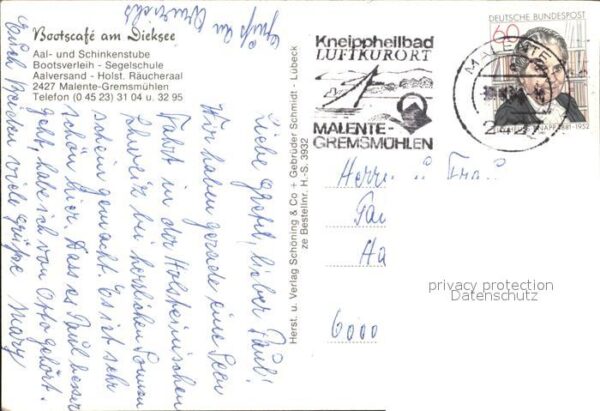 Bootscafé am Dieksee
Aal- und Schinkenstube
Bootsverleih - Segelschule
Aalversand - Holst. Räucheraal
2427 Malente-Gremsmühlen
Telefon (0 45 23) 31 04 u. 32 95
Liebe Gretel, lieber Paul!
Wir haben gerade eine Seen
Fahrt in der Holsteinischen
Schweiz bei herrlichem Sonnen
schein gemacht. Es ist sehr
schön hier. Dass es Paul besser
geht, habe ich von Otto gehört.
Euch Beiden viele Grüße Mary
Gruß an
Herst. u. Verlag Schöning & Co + Gebrüder Schmidt - Lübeck
ze Bestellnr. H.-S. 3932
Kneippheilbad
LUFTKURORT
MALENTE-
GREMSMÜHLEN
MALENTE
DEUTSCHE BUNDESPOST
60
1881-1952
Herrn
6000
privacy protection
Datenschutz